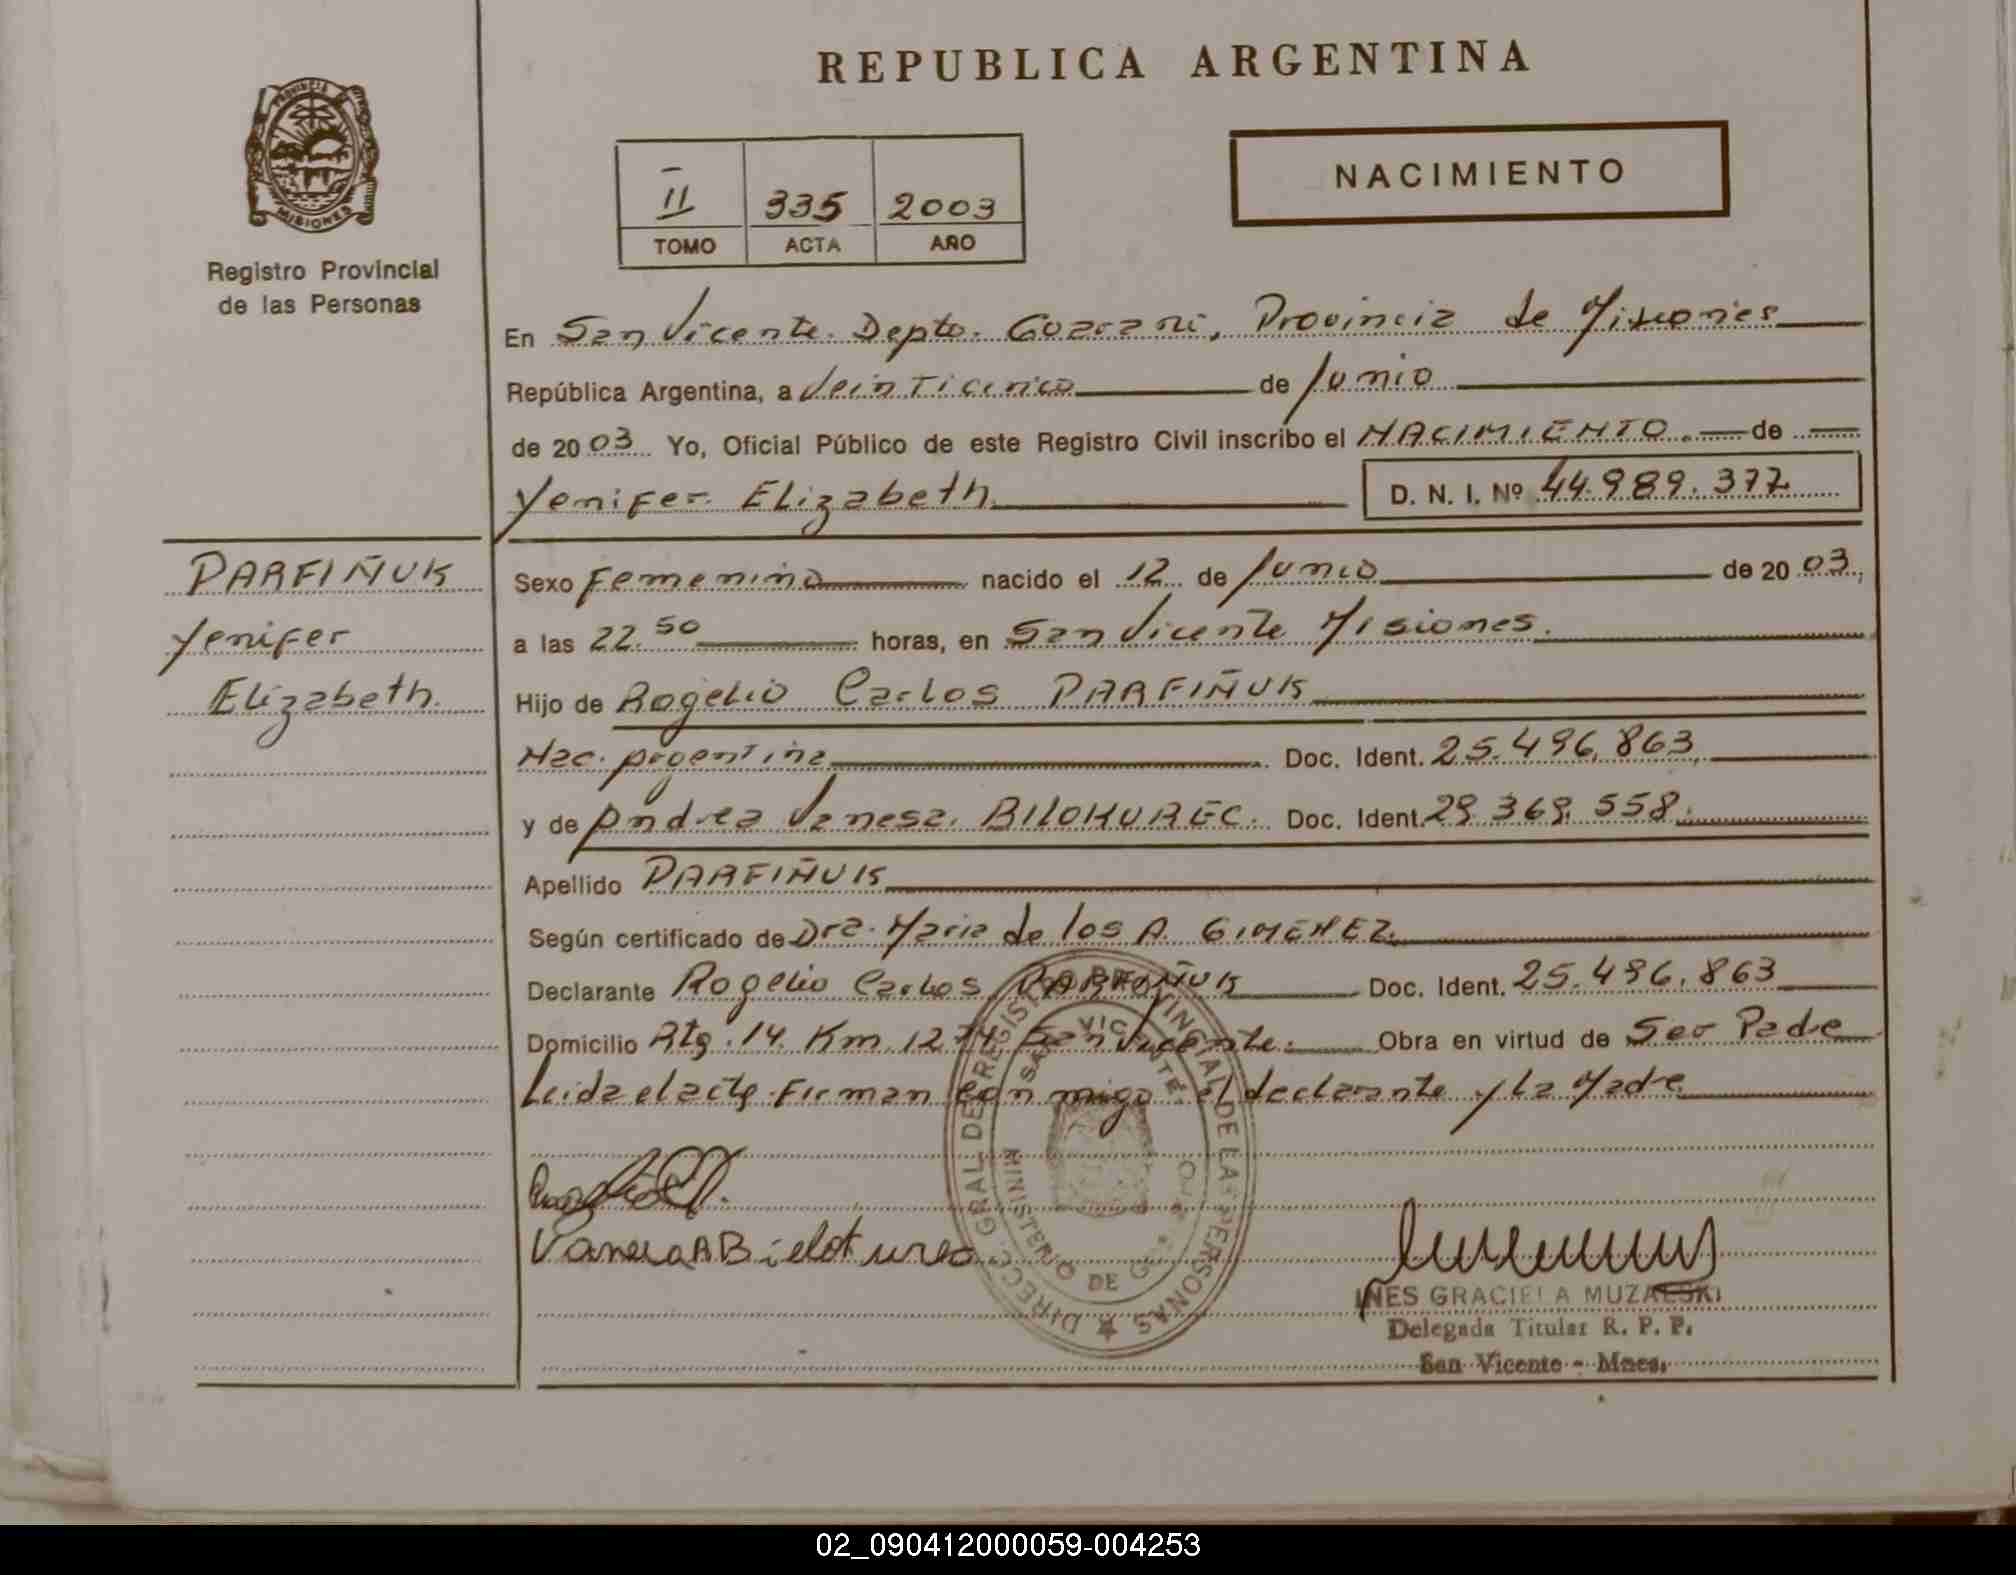 REPUBLICA ARGENTINA
PROVINCIA DE
MISIONES
Registro Provincial
de las Personas
II 335 2003
TOMO ACTA AÑO
NACIMIENTO
En San Vicente. Depto. Guarani, Provincia de Misiones
República Argentina, a Veinticinco de Junio
de 2003 Yo, Oficial Público de este Registro Civil inscribo el NACIMIENTO.— de —
Yenifer Elizabeth
D. N. I. Nº 44.989.377
PARFIÑUK
Yenifer
Elizabeth.
Sexo Femenino nacido el 12 de Junio de 2003,
a las 22.50 horas, en San Vicente Misiones.
Hijo de Rogelio Carlos PARFIÑUK
Nac. Argentina Doc. Ident. 25.496.863,
y de Andrea Vanesa. BILOKUREC. Doc. Ident. 29.369.558.
Apellido PARFIÑUK
Según certificado de Dra. Maria de los A. GIMENEZ.
Declarante Rogelio Carlos PARFIÑUK Doc. Ident. 25.496.863
Domicilio Rta. 14 Km 1274 San Vicente. Obra en virtud de Ser Padre
Leida el acta Firman conmigo el declarante y La Madre
DIRECC. GRAL. DE REGISTRO PROVINCIAL DE LAS PERSONAS
SAN VICENTE
MINISTERIO DE GOBIERNO
INES GRACIELA MUZALSKI
Delegada Titular R. P. P.
San Vicente - Mnes.
02_090412000059-004253